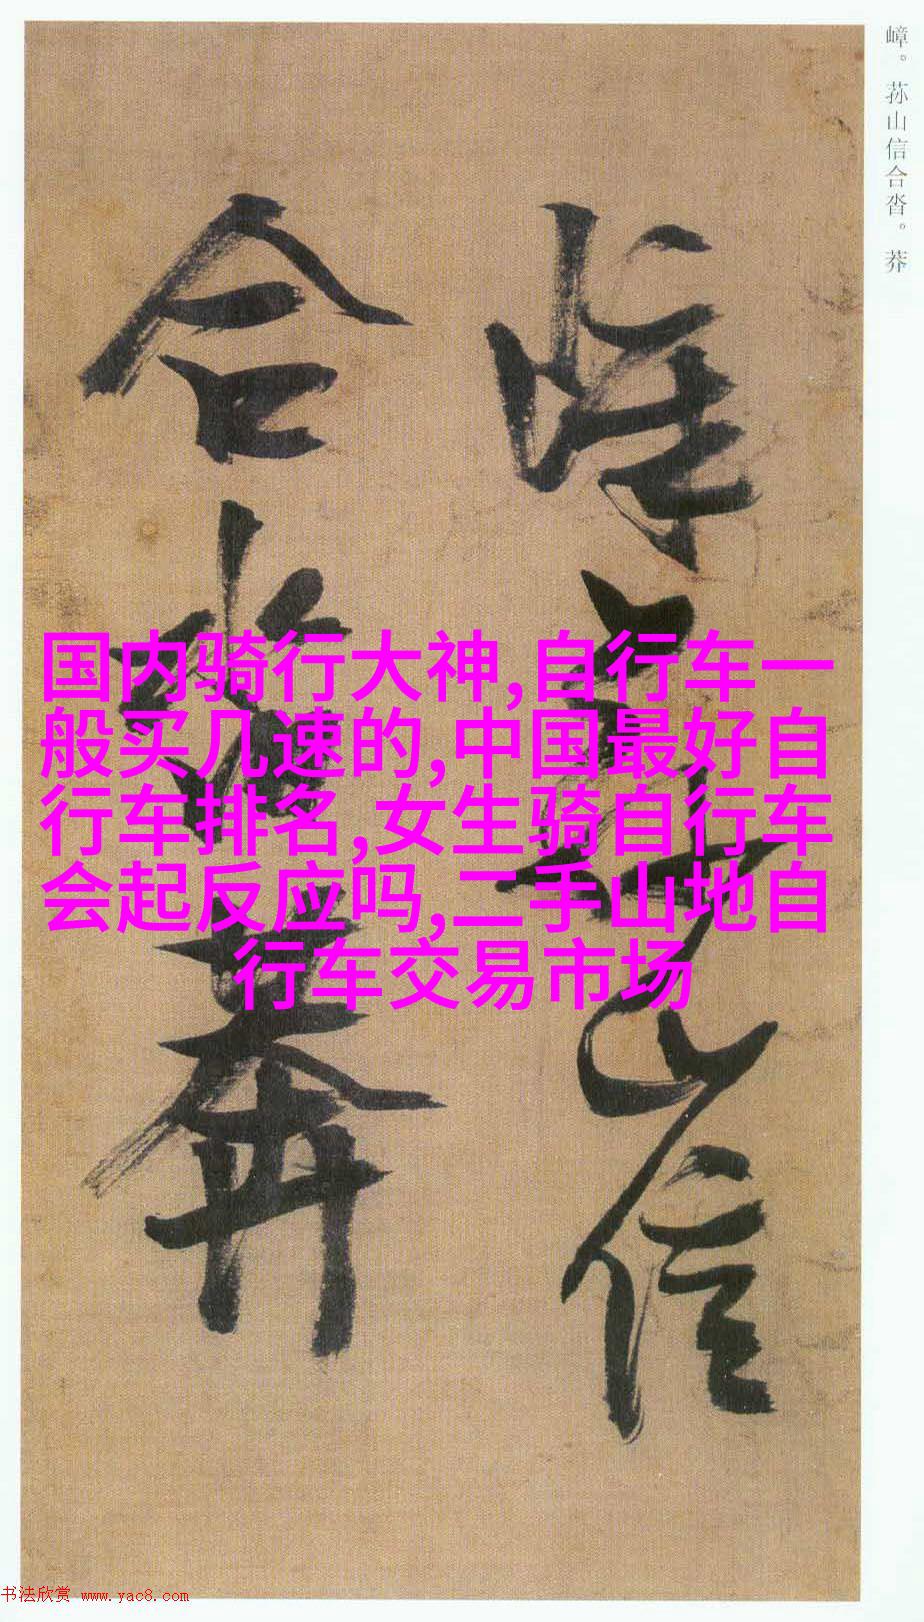 嶂。荪山信合沓。莽
嶂荪山信
合沓莽
国内骑行大神,自行车一
般买几速的,中国最好自
行车排名,女生骑自行车
会起反应吗,二手山地自
行车交易市场
书法欣赏 www.yac8.com